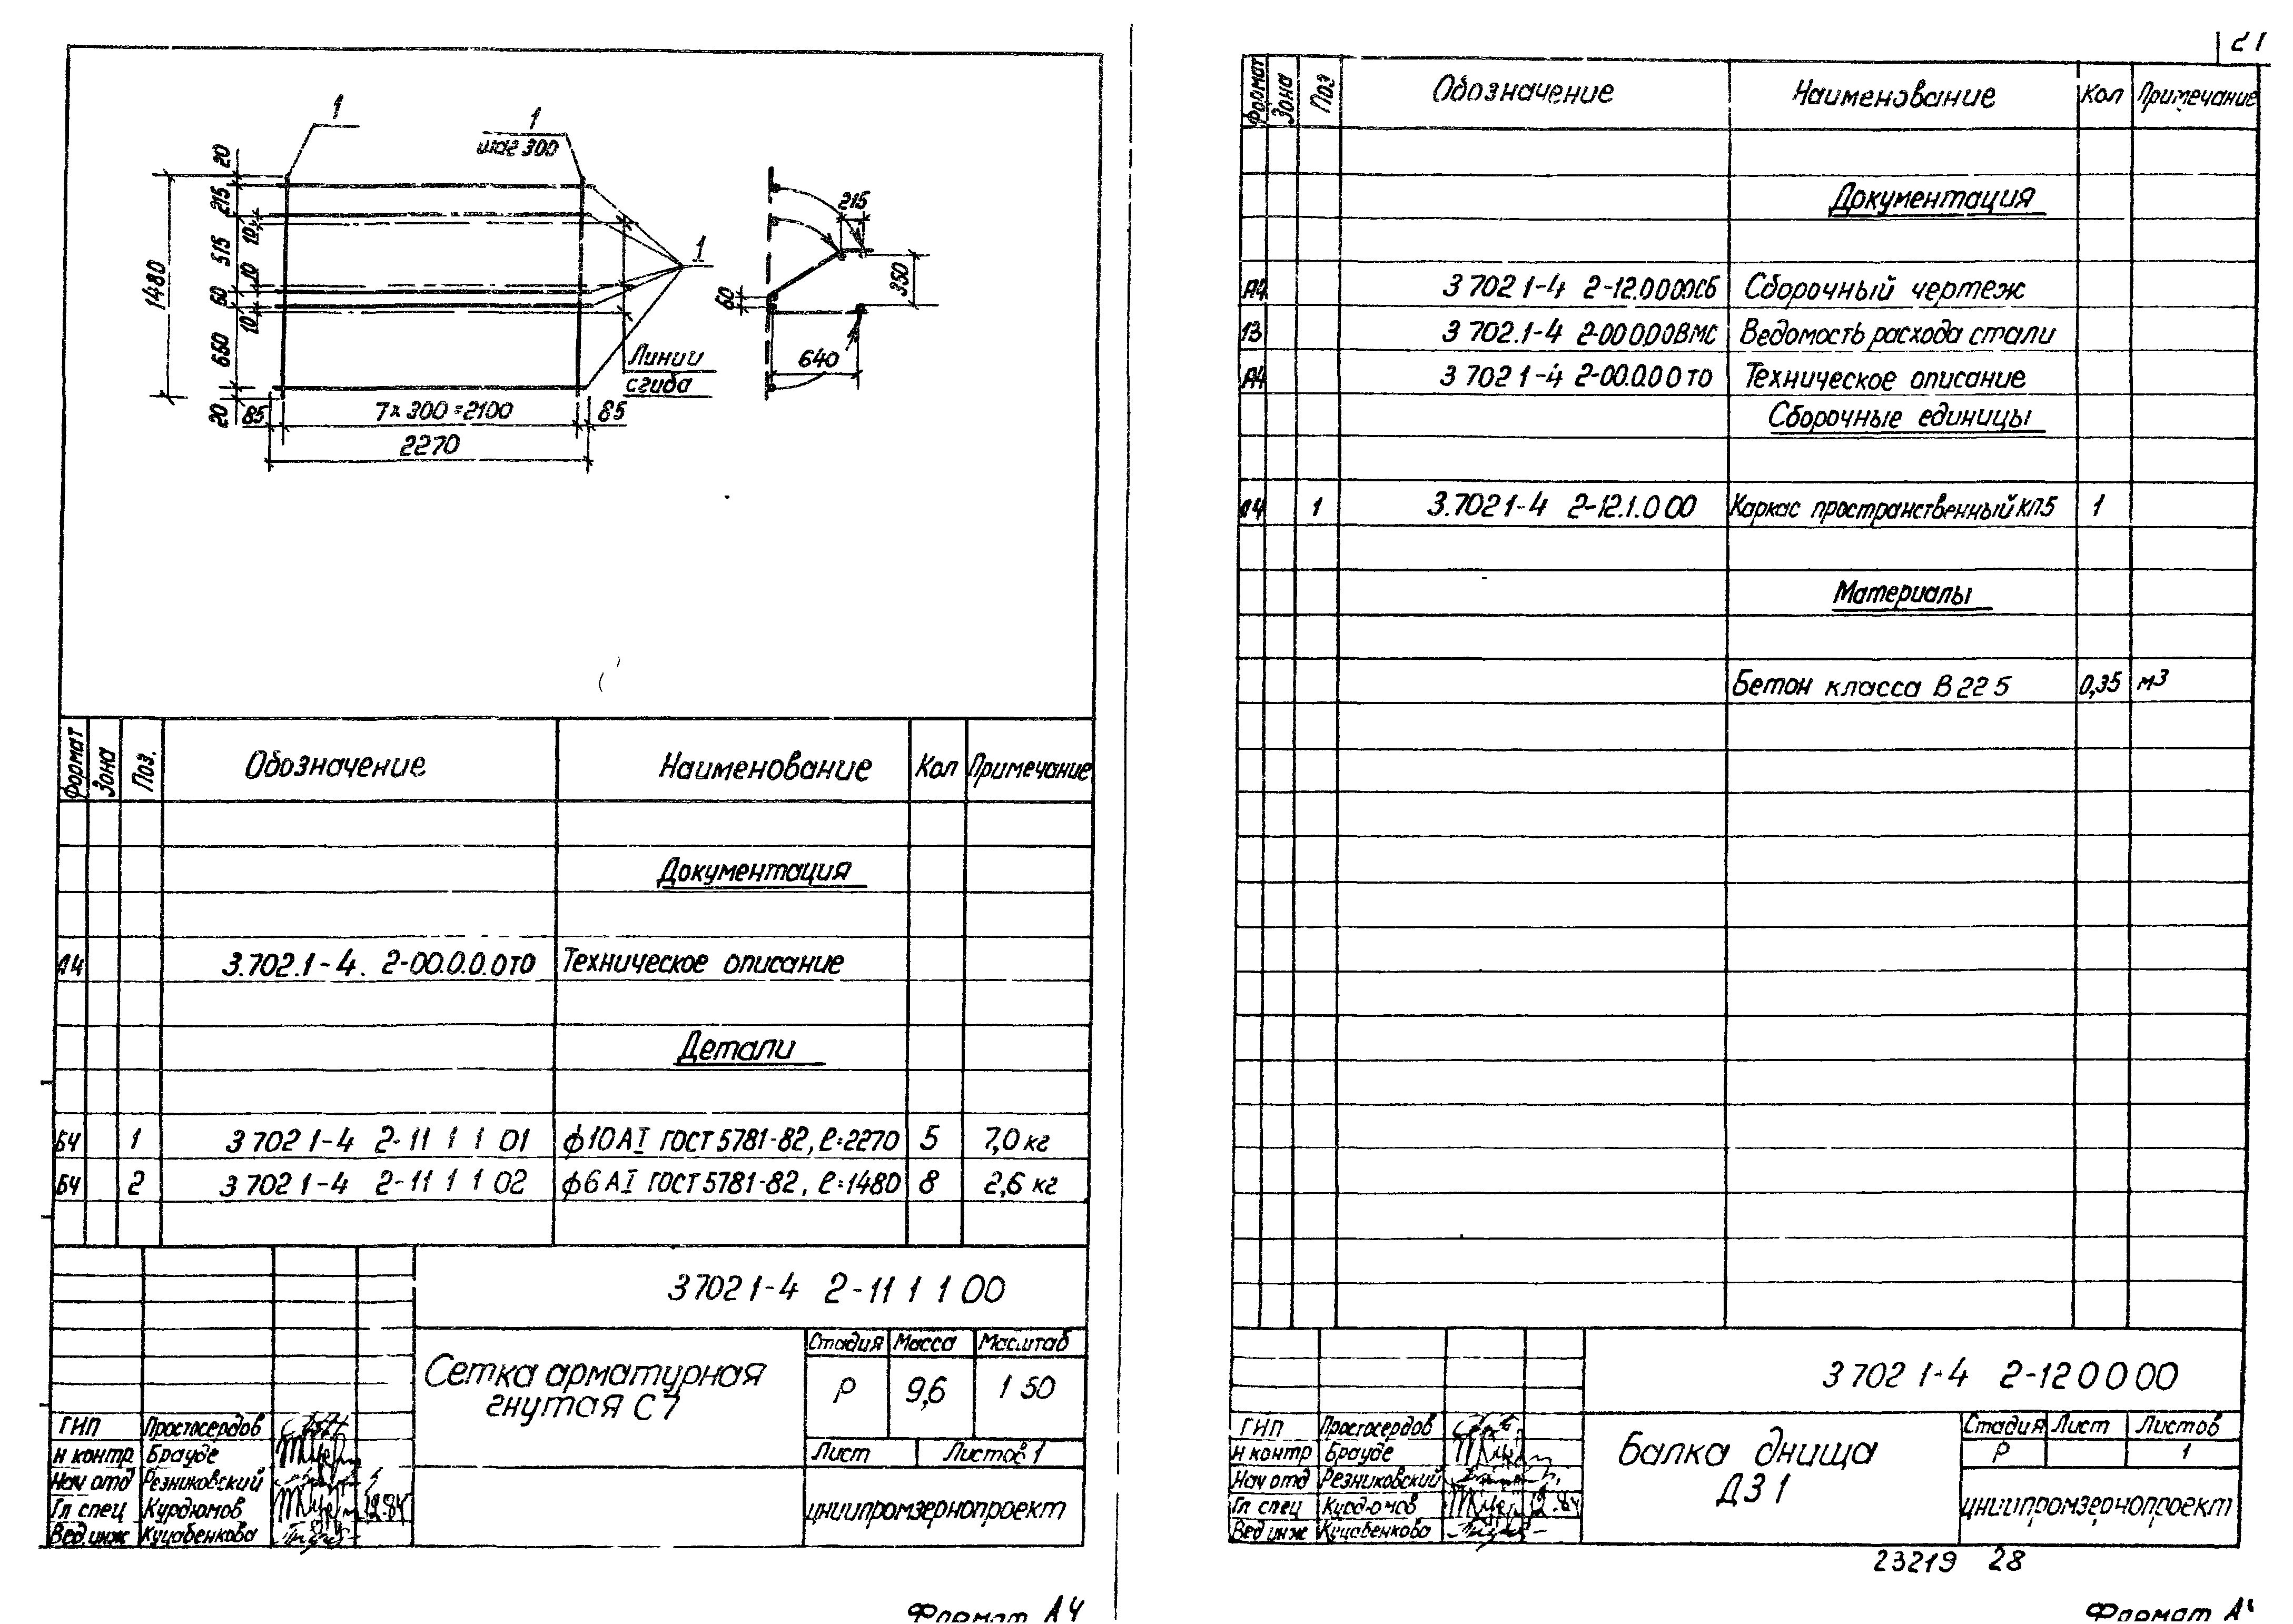 1
1
шаг 300
20
215
10
515
10
60
10
650
20
1480
1
Линии
сгиба
85
7х300=2100
85
2270
215
350
60
640
Формат Зона Поз. Обозначение Наименование Кол Примечание
Документация
А4 3.702.1-4. 2-00.0.0.0ТО Техническое описание
Детали
БЧ 1 3 702 1-4 2-11 1 1 01 ф10АI ГОСТ 5781-82, ℓ=2270 5 7,0 кг
БЧ 2 3 702 1-4 2-11 1 1 02 ф6АI ГОСТ 5781-82, ℓ=1480 8 2,6 кг
3 702 1-4 2-11 1 1 00
Сетка арматурная
гнутая С7
Стадия Масса Масштаб
Р 9,6 1 50
Лист Листов 1
ЦНИИПРОМЗЕРНОПРОЕКТ
ГИП Простосердов
Н контр Брауде
Нач отд Резниковский
Гл спец Курдюмов 12.84
Вед.инж Куцабенкова
Формат А4
21
Формат Зона Поз Обозначение Наименование Кол Примечание
Документация
А4 3 702 1-4 2-12.0.0.00СБ Сборочный чертеж
13 3 702.1-4 2-00 0.0.0ВМС Ведомость расхода стали
А4 3 702 1-4 2-00.0.0 0 ТО Техническое описание
Сборочные единицы
А4 1 3.702 1-4 2-12.1.0 00 Каркас пространственный КП5 1
Материалы
Бетон класса В 22 5 0,35 м3
3 702 1-4 2-12 0 0 00
Балка днища
Д31
Стадия Лист Листов
Р 1
ЦНИИПРОМЗЕРНОПРОЕКТ
ГИП Простосердов
Н контр Брауде
Нач отд Резниковский
Гл спец Курдюмов 12.84
Вед инж Куцабенкова
23219 28
Формат А4